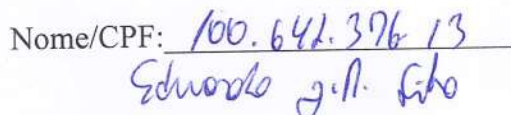 Nome/CPF: 100.641.376-13
Eduardo J.R. Filho